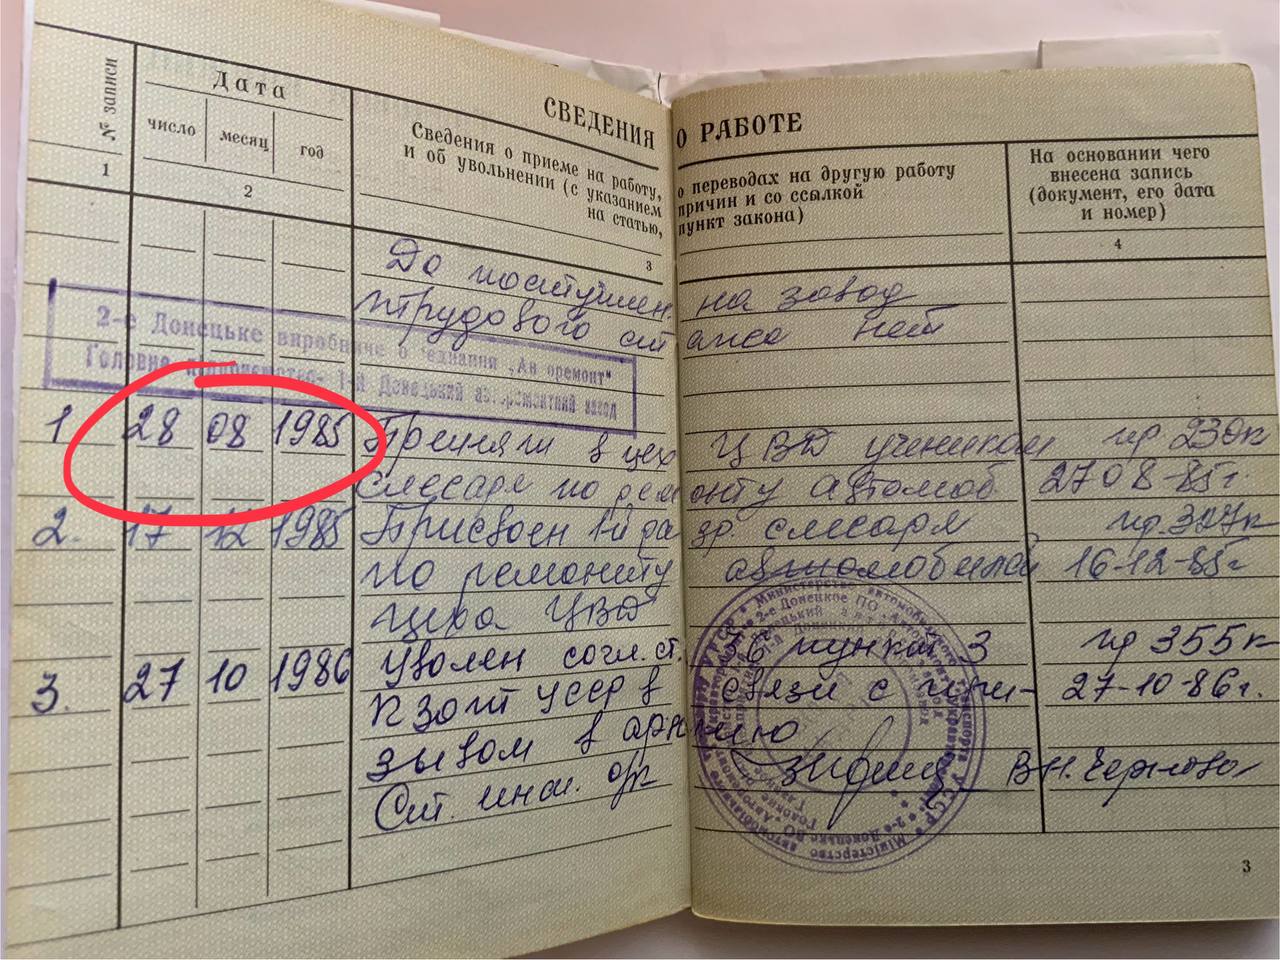 СВЕДЕНИЯ О РАБОТЕ
№ записи
Дата
число месяц год
Сведения о приеме на работу, о переводах на другую работу
и об увольнении (с указанием причин и со ссылкой
на статью, пункт закона)
На основании чего
внесена запись
(документ, его дата
и номер)
1 2 3 4
До поступлен. на завод
трудового стажа нет
2-е Донецьке виробниче о'єднання „Ав оремонт"
Головне підприємство- 1-й Донецький авторемонтний завод
1 28 08 1985 Приняти в цех ЦВД учеником пр 230к
слесаря по ремонту автомоб. 27 08-85г.
2. 17 12 1985 Присвоен 1й разр. слесаря пр. 327к
по ремонту автомобилей 16-12-85г
цеха ЦВД
3. 27 10 1986 Уволен согл. ст. 36 пункт 3 пр 355к
КЗоТ УССР в связи с при- 27-10-86г.
зывом в армию
Ст. инсп. о/к В.Н.
3